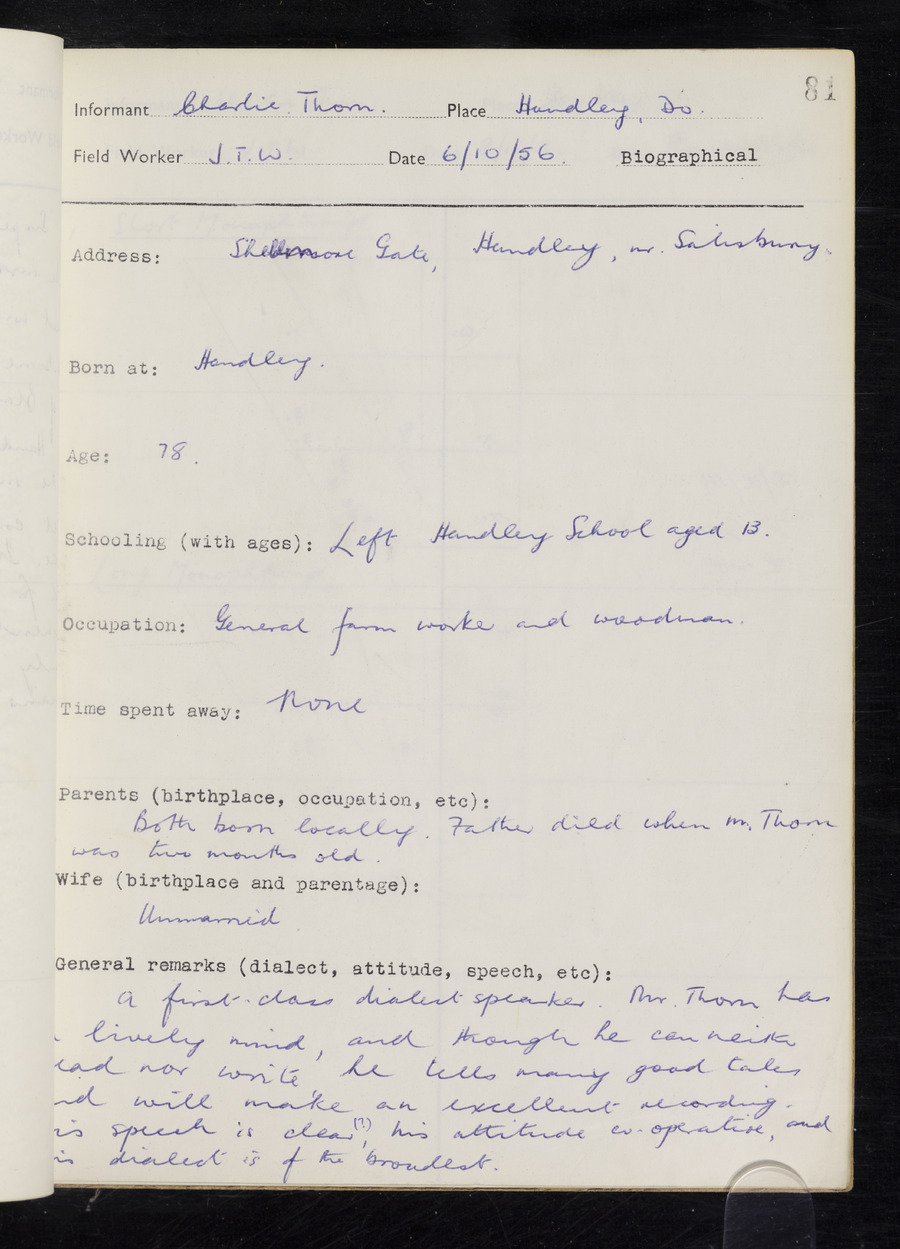 81
Informant Charlie Thorn. Place Handley, Do.
Field Worker J.T.W. Date 6/10/56. Biographical
Address: Gate, Handley, nr. Salisbury.
Born at: Handley.
Age: 78.
Schooling (with ages): Left Handley School aged 13.
Occupation: General farm worker and woodman.
Time spent away: None
Parents (birthplace, occupation, etc):
Both born locally. Father died when Mr. Thorn
was two months old.
Wife (birthplace and parentage):
Unmarried
General remarks (dialect, attitude, speech, etc):
A first-class dialect speaker. Mr. Thorn has
lively mind, and though he can neither
ead nor write he tells many good tales
nd will make an excellent recording.
is speech is clear(?), his attitude co-operative, and
is dialect is of the broadest.